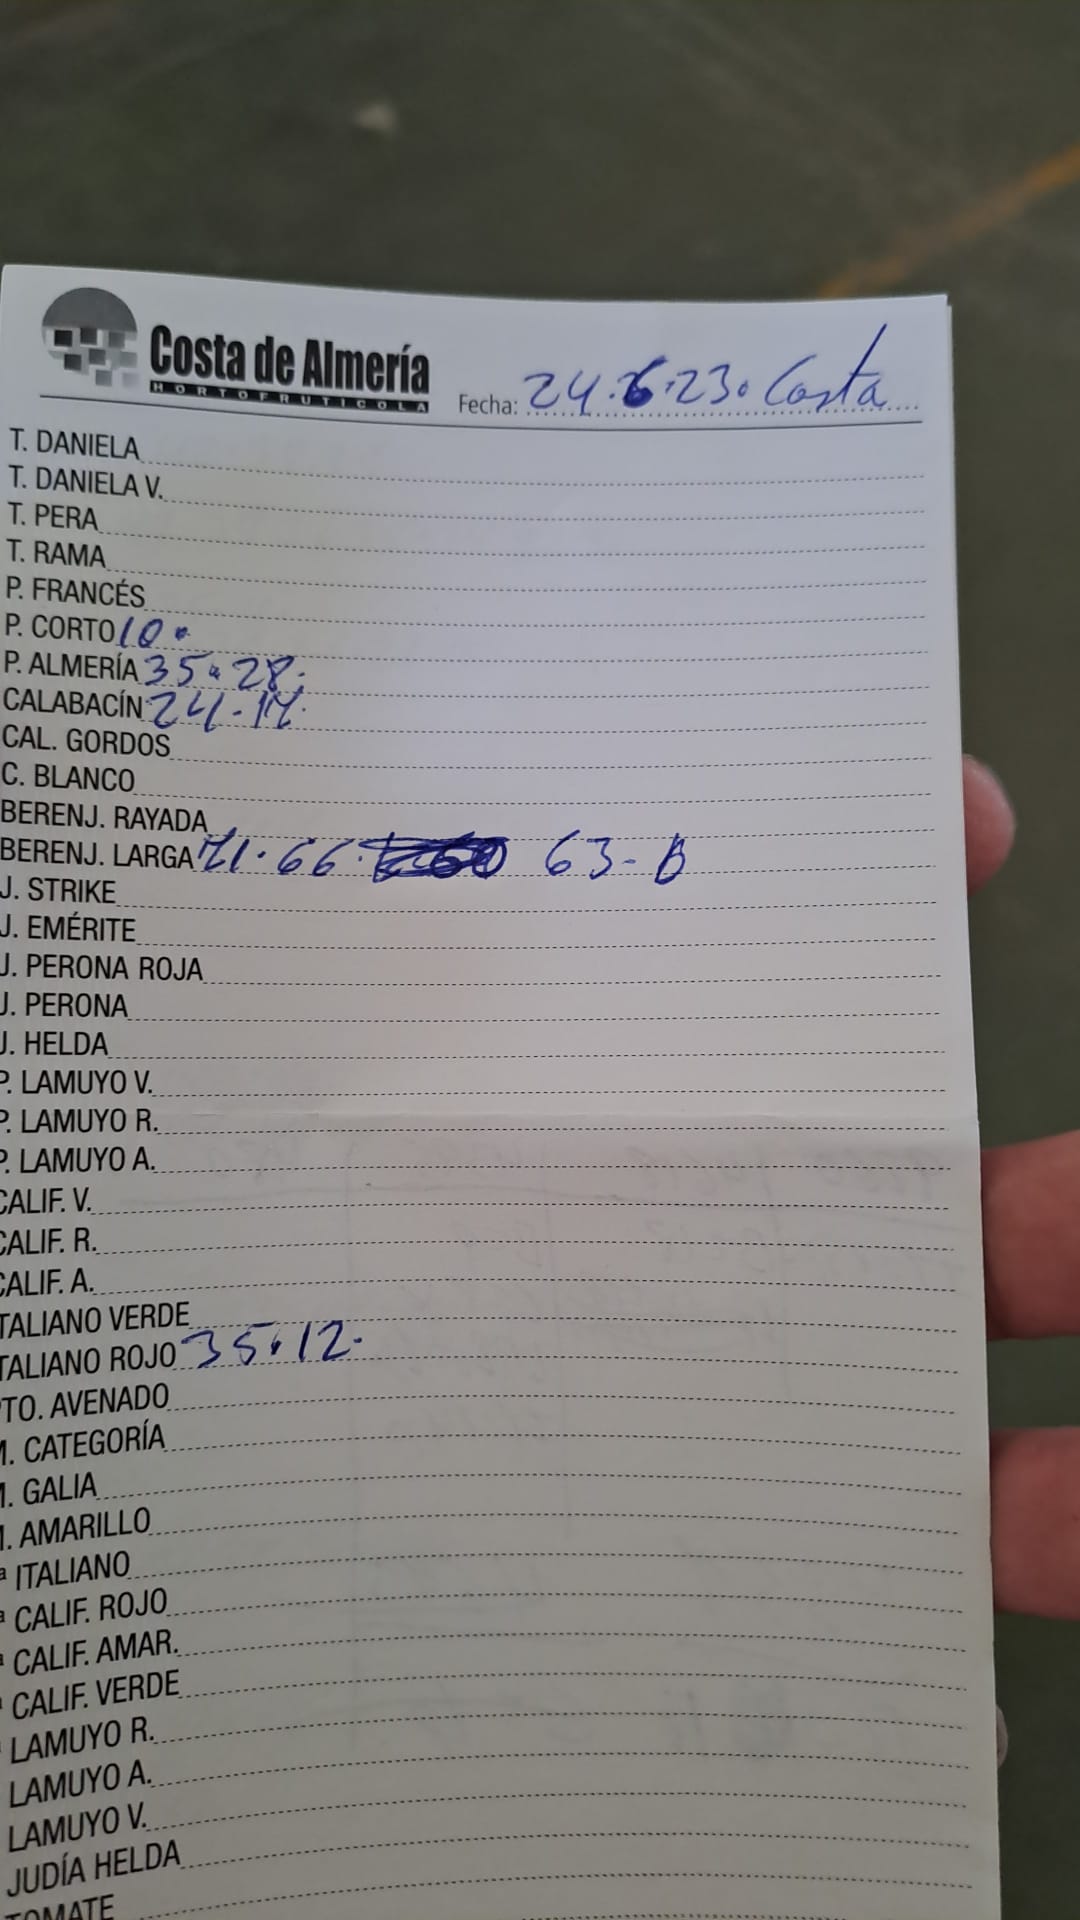 Costa de Almería
HORTOFRUTICOLA
Fecha: 24.6.23. Costa
T. DANIELA
T. DANIELA V.
T. PERA
T. RAMA
P. FRANCÉS
P. CORTO 10.
P. ALMERÍA 35.28.
CALABACÍN 24-14.
CAL. GORDOS
C. BLANCO
BERENJ. RAYADA
BERENJ. LARGA 71.66. 63-B
J. STRIKE
J. EMÉRITE
J. PERONA ROJA
J. PERONA
J. HELDA
P. LAMUYO V.
P. LAMUYO R.
P. LAMUYO A.
CALIF. V.
CALIF. R.
CALIF. A.
TALIANO VERDE
TALIANO ROJO 35.12.
TO. AVENADO
M. CATEGORÍA
M. GALIA
M. AMARILLO
ª ITALIANO
ª CALIF. ROJO
ª CALIF. AMAR.
CALIF. VERDE
LAMUYO R.
LAMUYO A.
LAMUYO V.
JUDÍA HELDA
TOMATE